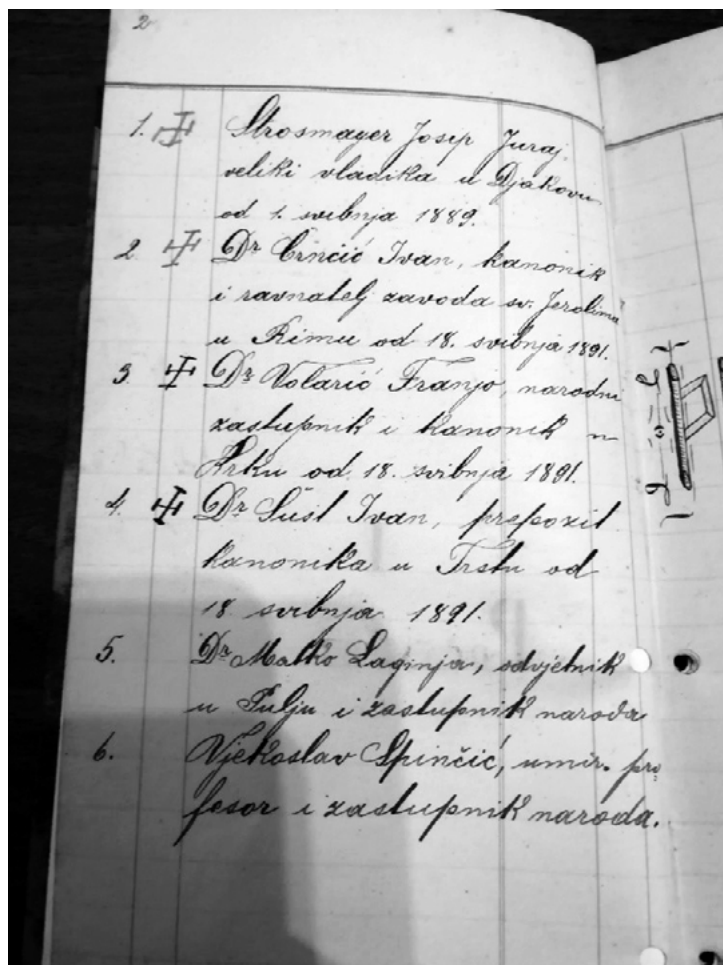 2
1. Strosmayer Josip Juraj.
veliki vladika u Djakovu
od 1. svibnja 1889.
2. Dr Crnčić Ivan, kanonik
i ravnatelj zavoda sv. Jerolima
u Rimu od 18. svibnja 1891.
3. Dr Volarić Franjo, narodni
zastupnik i kanonik u
Krku od 18. svibnja 1891.
4. Dr Šust Ivan, prepozit
kanonika u Trstu od
18 svibnja 1891.
5. Dr Matko Laginja, odvjetnik
u Pulju i zastupnik naroda
6. Vjekoslav Spinčić, umir. pro
fesor i zastupnik naroda.